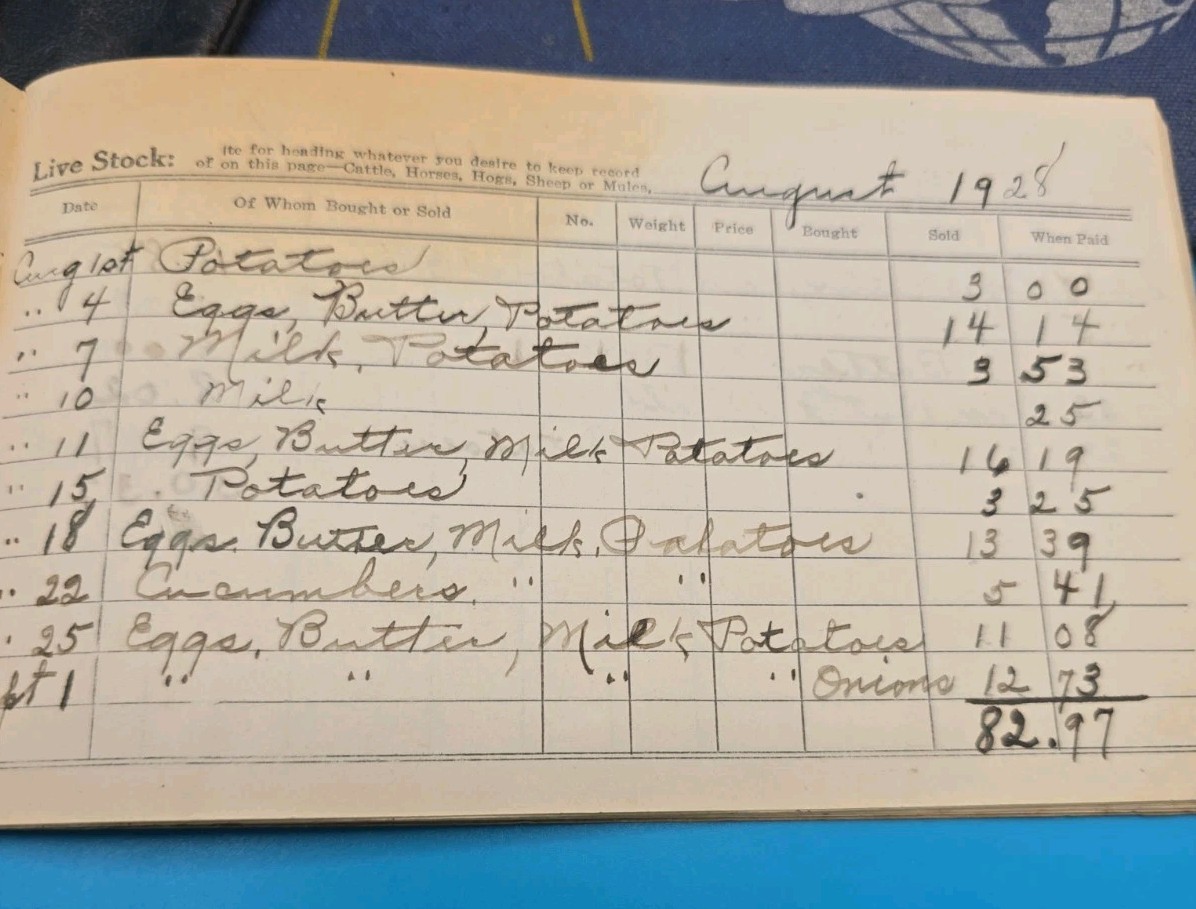 Live Stock: ite for heading whatever you desire to keep record
of on this page—Cattle, Horses, Hogs, Sheep or Mules,
August 1928
Date Of Whom Bought or Sold No. Weight Price Bought Sold When Paid
Aug 1st Potatoes 3 00
" 4 Eggs, Butter, Potatoes 14 14
" 7 Milk, Potatoes 3 53
" 10 Milk 25
" 11 Eggs, Butter, Milk Potatoes 16 19
" 15 Potatoes 3 25
" 18 Eggs. Butter, Milk, Patatoes 13 39
" 22 Cucumbers, " " 5 41
" 25 Eggs, Butter, Milk Potatoes 11 08
pt 1 " " " " Onions 12 73
82.97